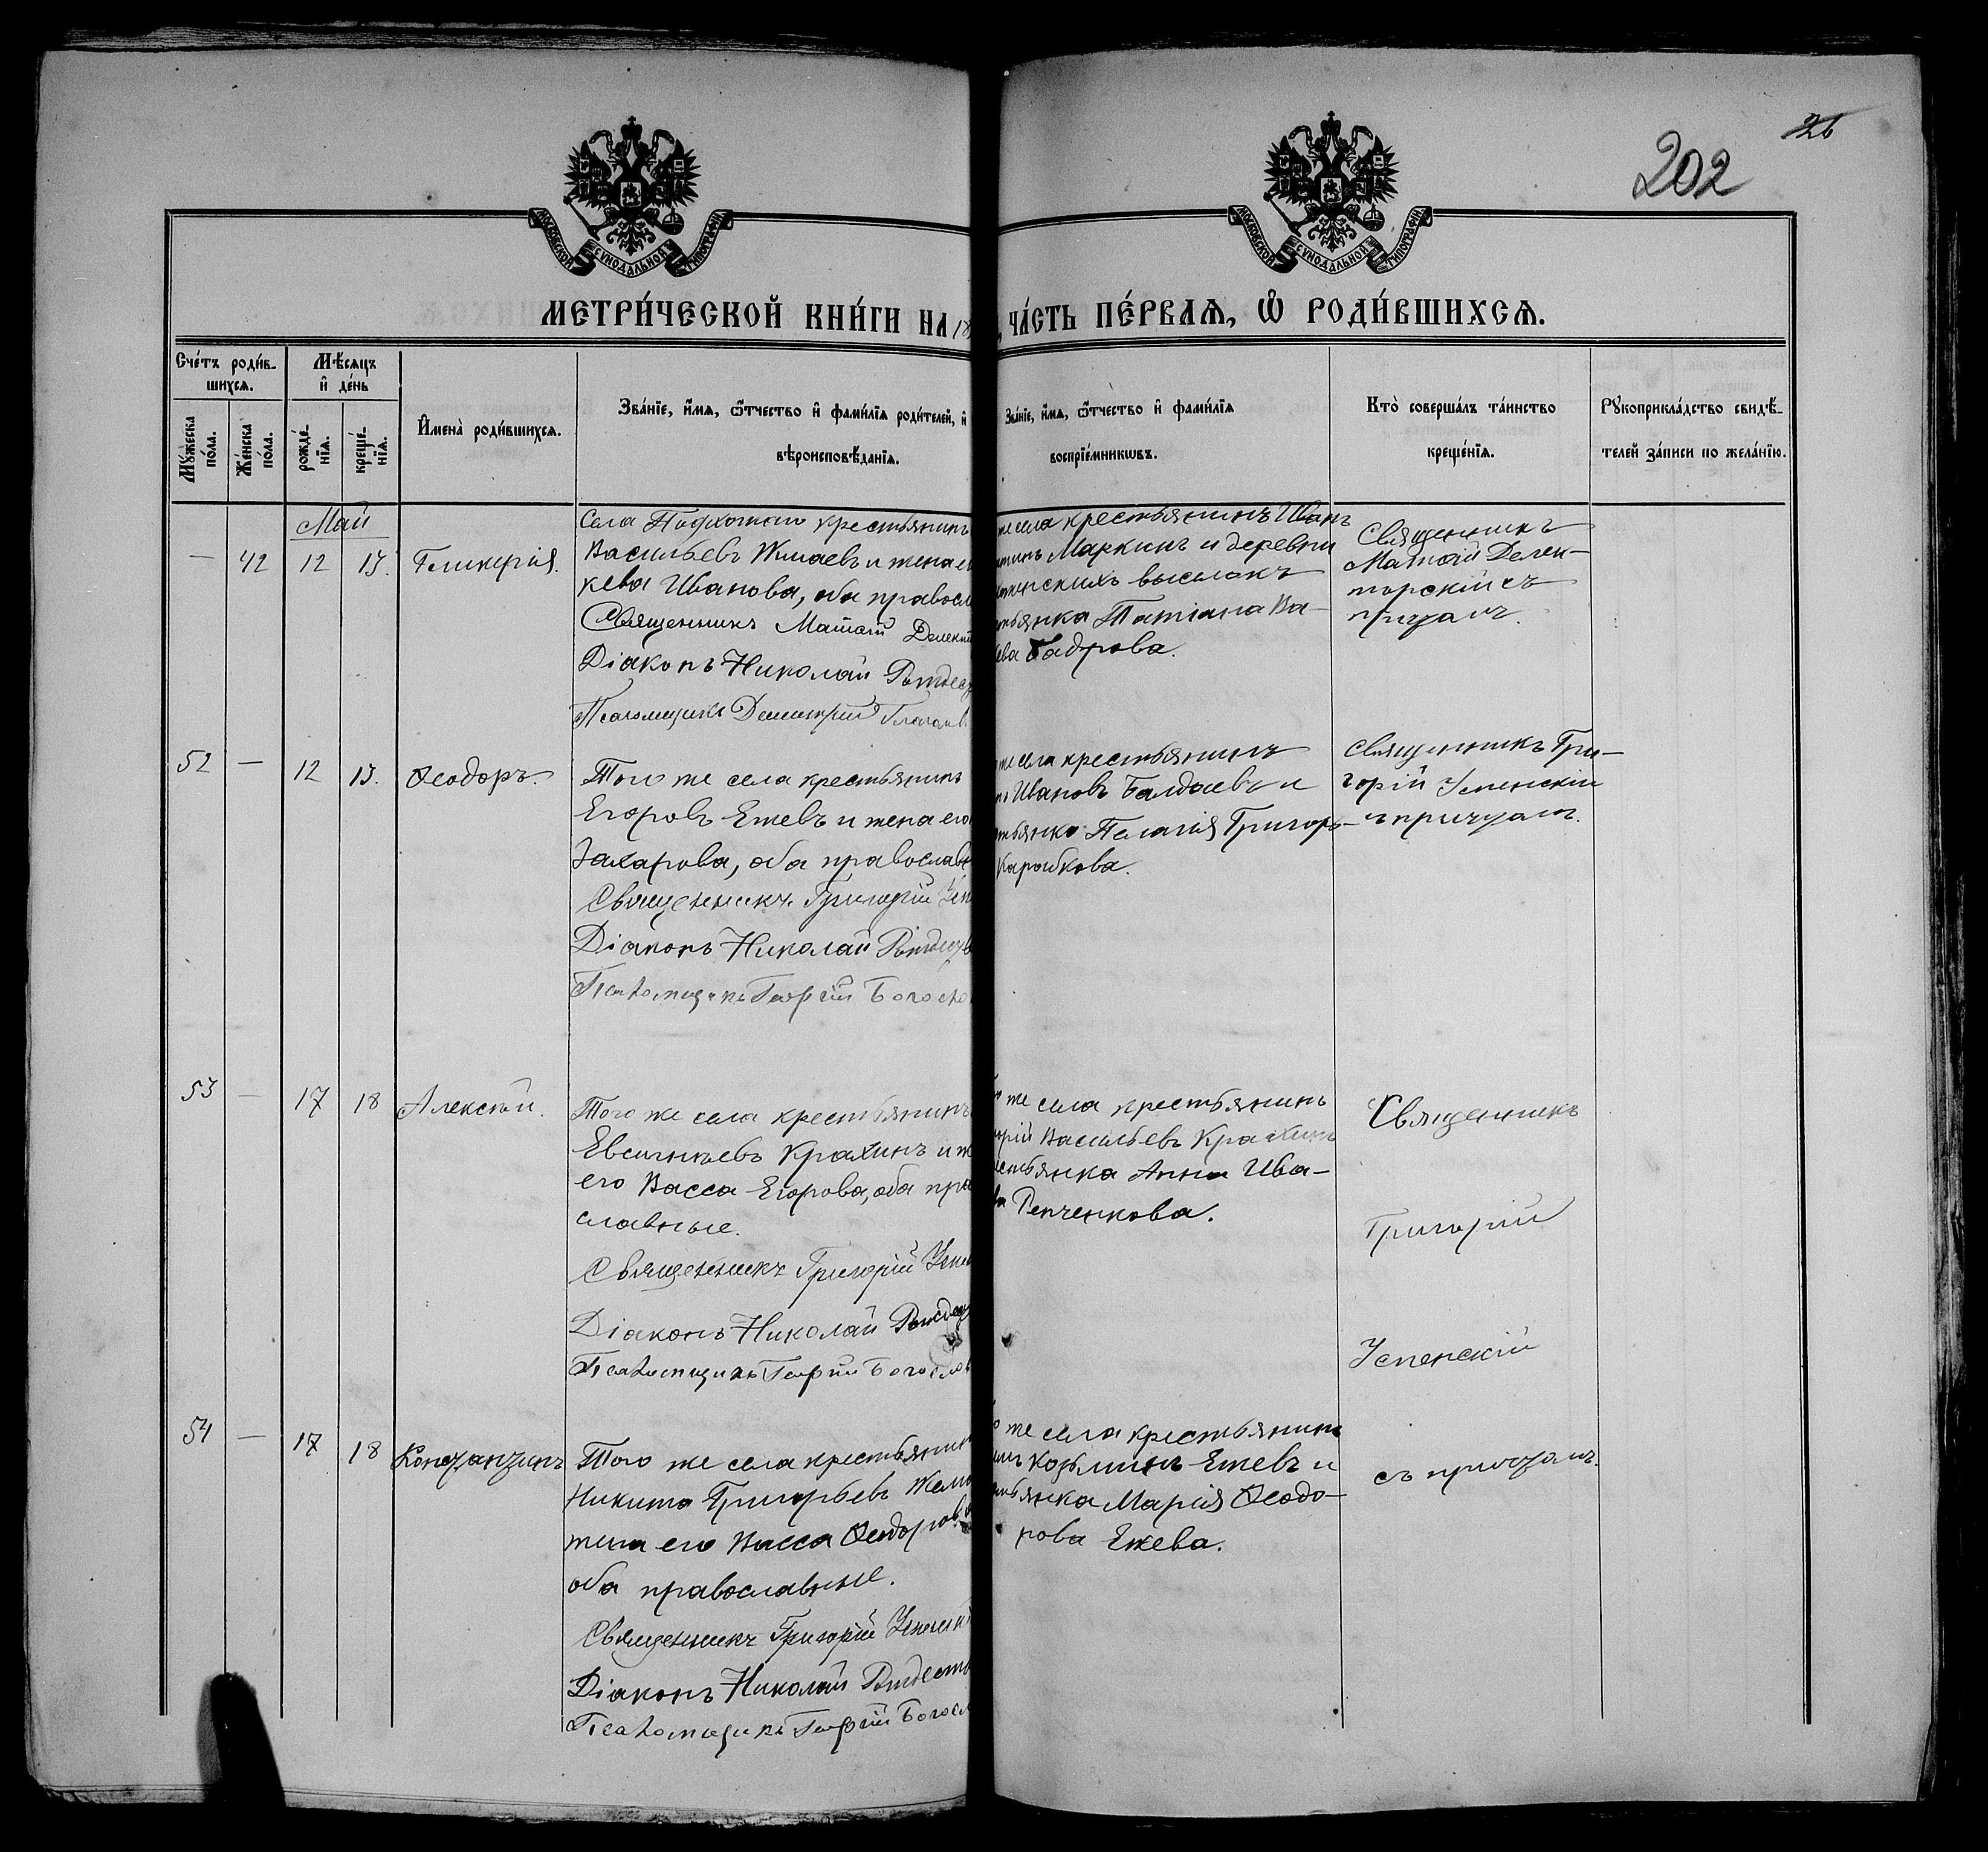 26
202
МОСКОВСКОЙ СѴНОДАЛЬНОЙ ТИПОГРАФІИ
МОСКОВСКОЙ СѴНОДАЛЬНОЙ ТИПОГРАФІИ
МЕТРИ́ЧЕСКОЙ КНИ́ГИ НА 18
ЧА́СТЬ ПЕ́РВАЯ, Ѽ РОДИ́ВШИХСЯ.
Сче́тъ роди́в-
шихся.
Мѣ́сяцъ
и҆ де́нь
Мꙋ́жеска по́ла.
Же́нска по́ла.
рожде́-
нїя.
креще́-
нїя.
И҆мена̀ роди́вшихся.
Зва́нїе, и҆́мя, ѻ҆́тчество и҆ фами́лїя роди́телей, и҆
вѣроисповѣ́данїя.
Зва́нїе, и҆́мя, ѻ҆́тчество и҆ фами́лїя
воспрїе́мникѡвъ.
Кто̀ соверша́лъ та́инство
креще́нїя.
Рꙋкоприкла́дство свидѣ́-
телей за́писи по жела́нїю.
Май
— 42 12 13. Гликерія.
Села крестьянинъ
Васильевъ и жена
Иванова, оба правосл
Священникъ Матѳій Делект
Діаконъ Николай Рождес
Псаломщикъ Димитрій
же села крестьянинъ Иванъ
Маркинъ и деревни
выселокъ
Татіана Ва-
Священникъ
Матѳій Делек-
торскій съ
причтомъ.
52 — 12 13. Ѳеодоръ.
Того же села крестьянинъ
Егоровъ Ежевъ и жена его
Захарова, оба православн
Священникъ Григорій Усп
Діаконъ Николай Рождеств
Псаломщикъ Георгій Богосло
же села крестьянинъ
Ивановъ Балдаевъ и
Пелагія Григорь-
Священникъ Гри-
горій Успенскій
съ причтомъ.
53 — 17 18 Алексѣй.
Того же села крестьянинъ
Евсигнѣевъ Крахинъ и ж
его Васса Егорова, оба пра
славные.
Священникъ Григорій Успе
Діаконъ Николай Рождес
Псаломщикъ Георгій Богослов
же села крестьянинъ
Васильевъ Крахинъ
Анна Ива-
Репченкова.
Священникъ
Григорій
Успенскій
54 — 17 18 Константинъ
Того же села крестьянин
Никита Григорьевъ
жена его Васса Ѳеодорова
оба православные.
Священникъ Григорій Успенскі
Діаконъ Николай Рождеств
Псаломщикъ Георгій Богосл
же села крестьянинъ
Козьминъ Ежевъ и
Марія Ѳеодо-
рова Ежева.
съ причтомъ.